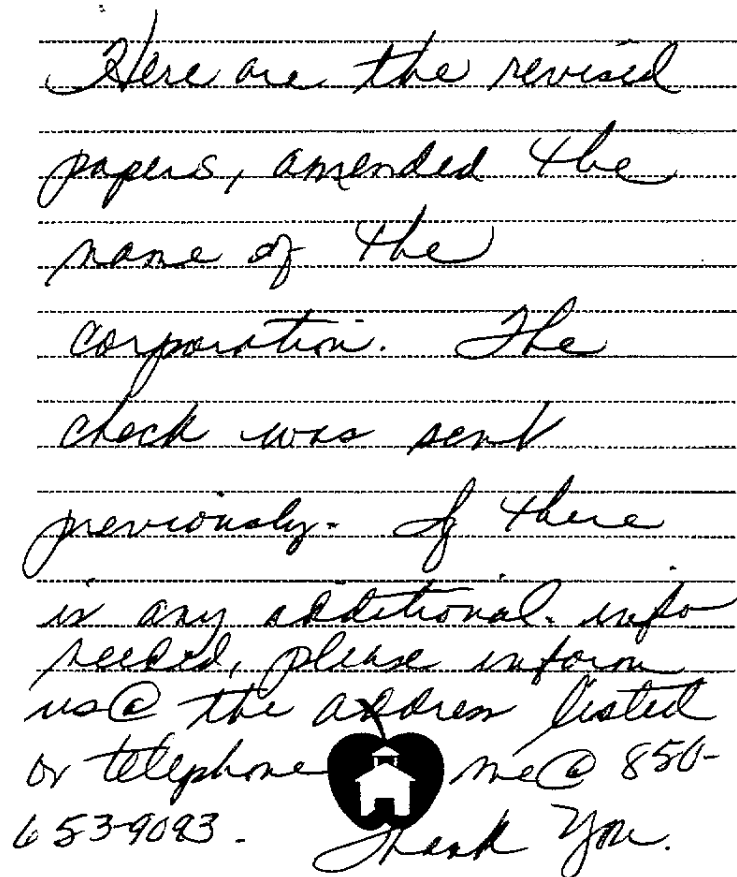 Here are the revised
papers, amended the
name of the
corporation. The
check was sent
previously. If there
is any additional info
needed, please inform
us @ the address listed
or telephone me @ 850-
653-9093. Thank You.